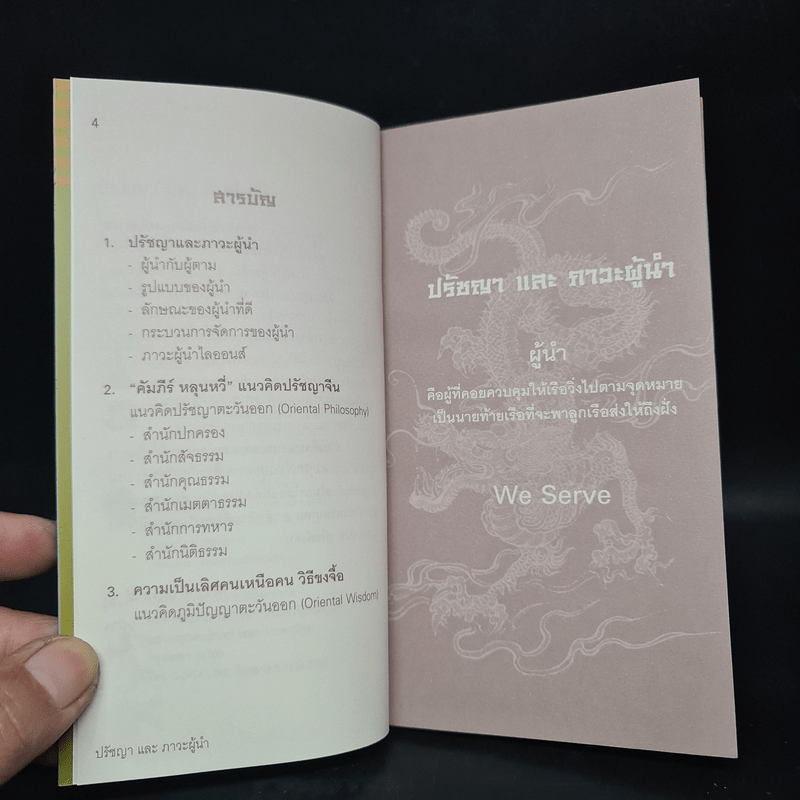 4
สารบัญ
1. ปรัชญาและภาวะผู้นำ
- ผู้นำกับผู้ตาม
- รูปแบบของผู้นำ
- ลักษณะของผู้นำที่ดี
- กระบวนการจัดการของผู้นำ
- ภาวะผู้นำไลออนส์
2. “คัมภีร์ หลุนหวี่” แนวคิดปรัชญาจีน
แนวคิดปรัชญาตะวันออก (Oriental Philosophy)
- สำนักปกครอง
- สำนักสัจธรรม
- สำนักคุณธรรม
- สำนักเมตตาธรรม
- สำนักการทหาร
- สำนักนิติธรรม
3. ความเป็นเลิศคนเหนือคน วิธีขงจื้อ
แนวคิดภูมิปัญญาตะวันออก (Oriental Wisdom)
ปรัชญา และ ภาวะผู้นำ
ปรัชญา และ ภาวะผู้นำ
ผู้นำ
คือผู้ที่คอยควบคุมให้เรือวิ่งไปตามจุดหมาย
เป็นนายท้ายเรือที่จะพาลูกเรือส่งให้ถึงฝั่ง
We Serve